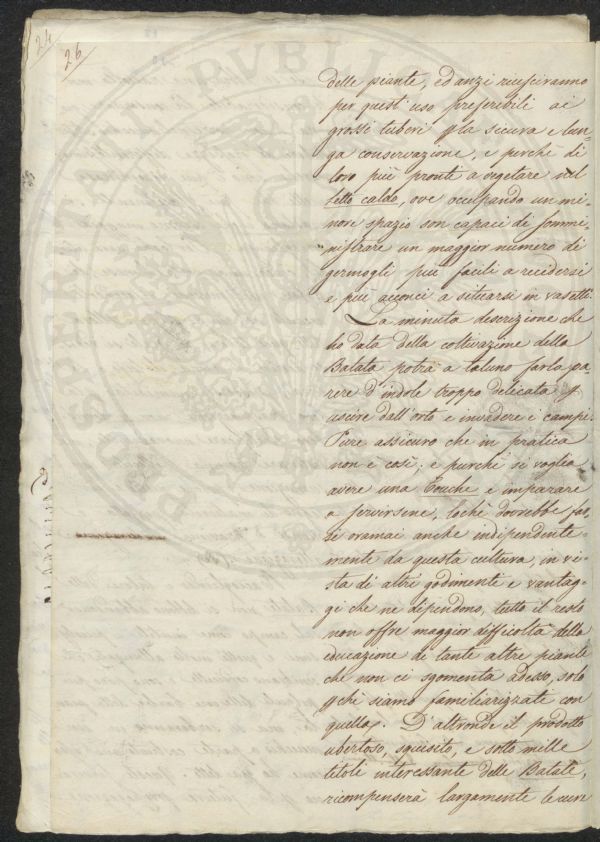 24
26
delle piante, ed anzi riusciranno
per quest'uso preferibili ai
grossi tuberi p la sicura e lun-
ga conservazione, e perchè di
loro più pronte a vegetare nel
letto caldo, ove occupando un mi-
nore spazio son capaci di sommi-
nistrare un maggior numero di
germogli più facili a recidersi
e più acconci a situarsi in vasetti.
La minuta descrizione che
ho data della coltivazione della
Batata potrà a taluno farla pa-
rere d'indole troppo delicata p
uscire dall'orto e invadere i campi.
Pure assicuro che in pratica
non è così; e purchè si voglia
avere una Couche e imparare
a servirsene, lochè dovrebbe far-
si oramai anche indipendente-
mente da questa cultura, in vi-
sta di altri godimenti e vantag-
gi che ne dipendono, tutto il resto
non offre maggior difficoltà della
educazione di tante altre piante
che non ci sgomenta adesso, solo
pchè siamo familiarizzate con
quella. D'altronde il prodotto
ubertoso, squisito, e sotto mille
titoli interessante delle Batate,
ricompenserà largamente le cure